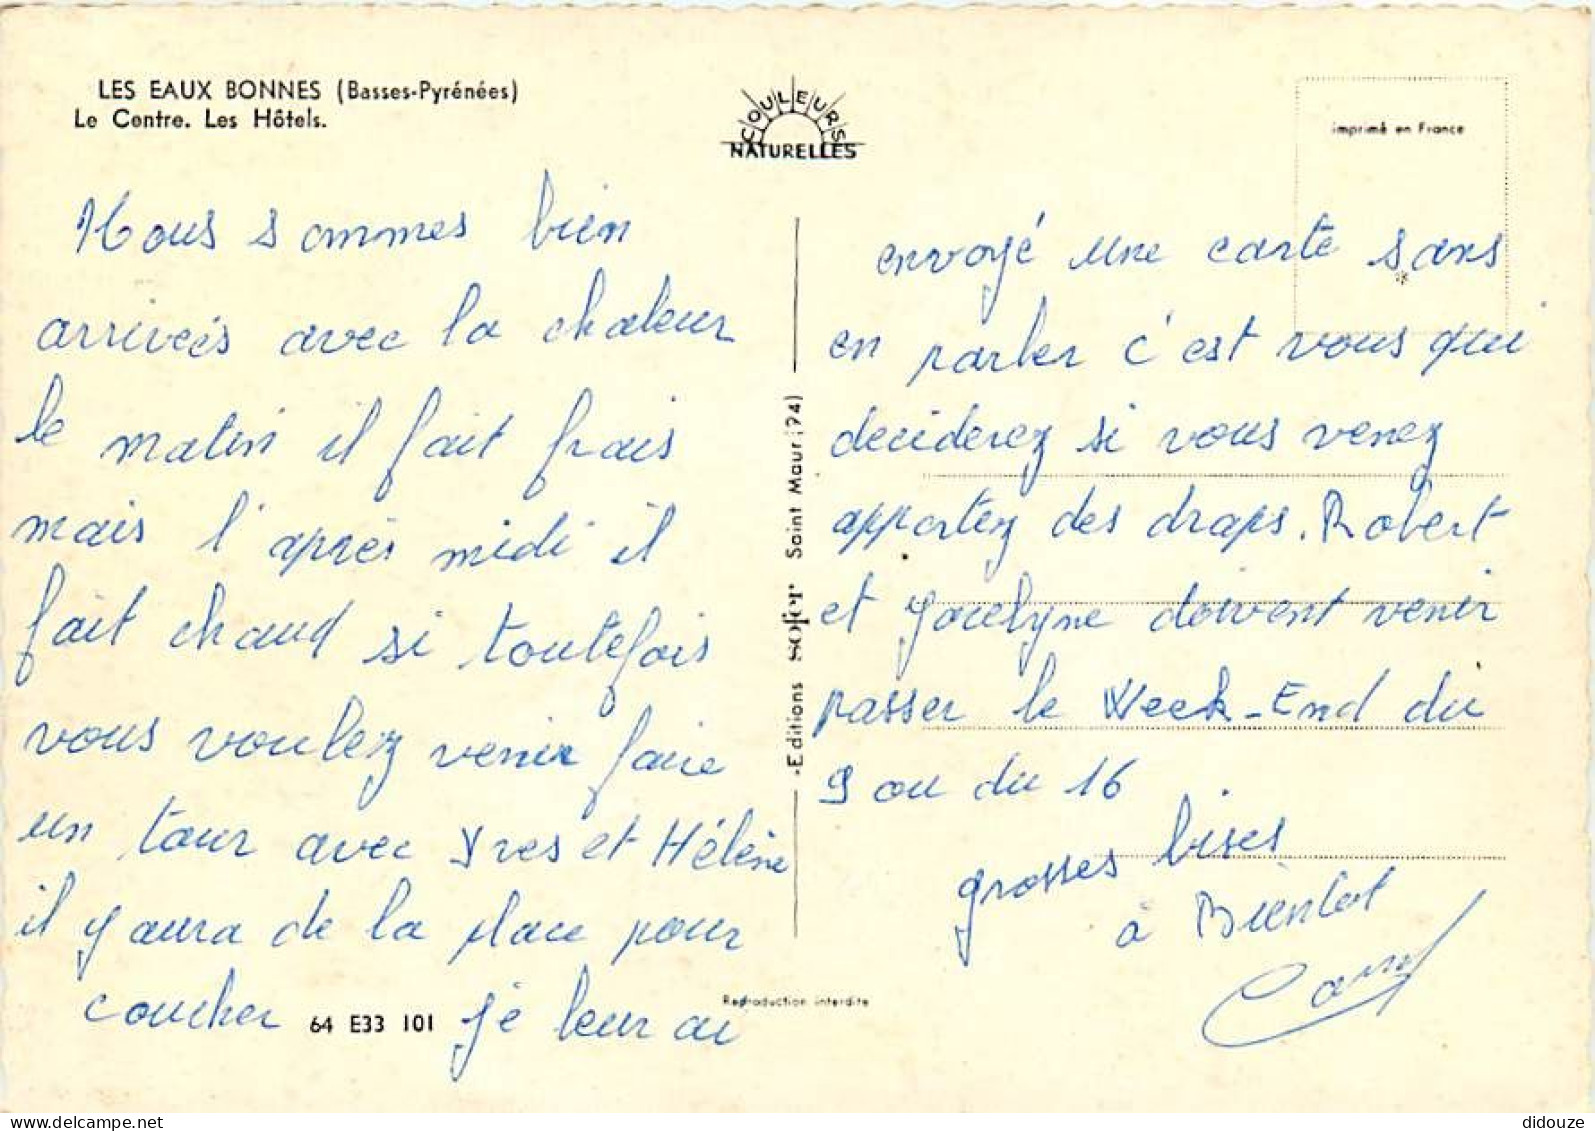 LES EAUX BONNES (Basses-Pyrénées)
Le Centre. Les Hôtels.
COULEURS
NATURELLES
imprimé en France
Nous sommes bien
arrivées avec la chaleur
le matin il fait frais
mais l'après midi il
fait chaud si toutefois
vous voulez venir faire
un tour avec Yves et Hélène
il y aura de la place pour
coucher je leur ai
64 E33 101
-Editions sofer Saint Maur (94)
Reproduction interdite
envoyé une carte sans
en parler c'est vous qui
deciderez si vous venez
apportez des draps. Robert
et Jocelyne doivent venir
passer le Week-End du
9 ou du 16
grosses bises
à Bientot
didouze